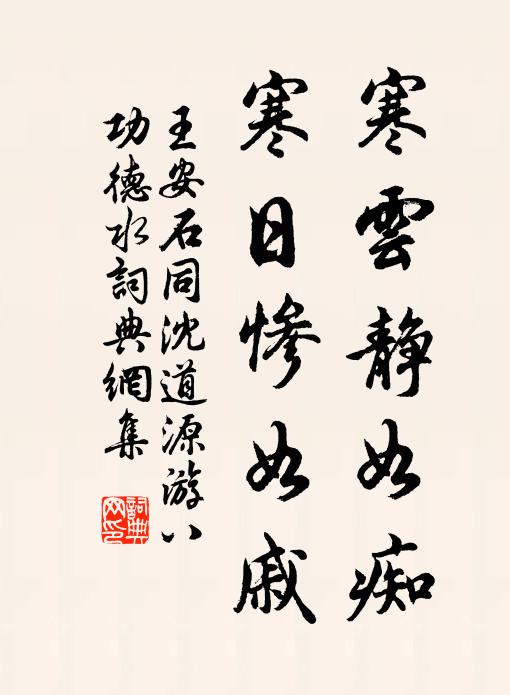 寒雲靜如痴
寒日慘如戚
王安石同沈道源游八
功德水詞典網集
詞典網印